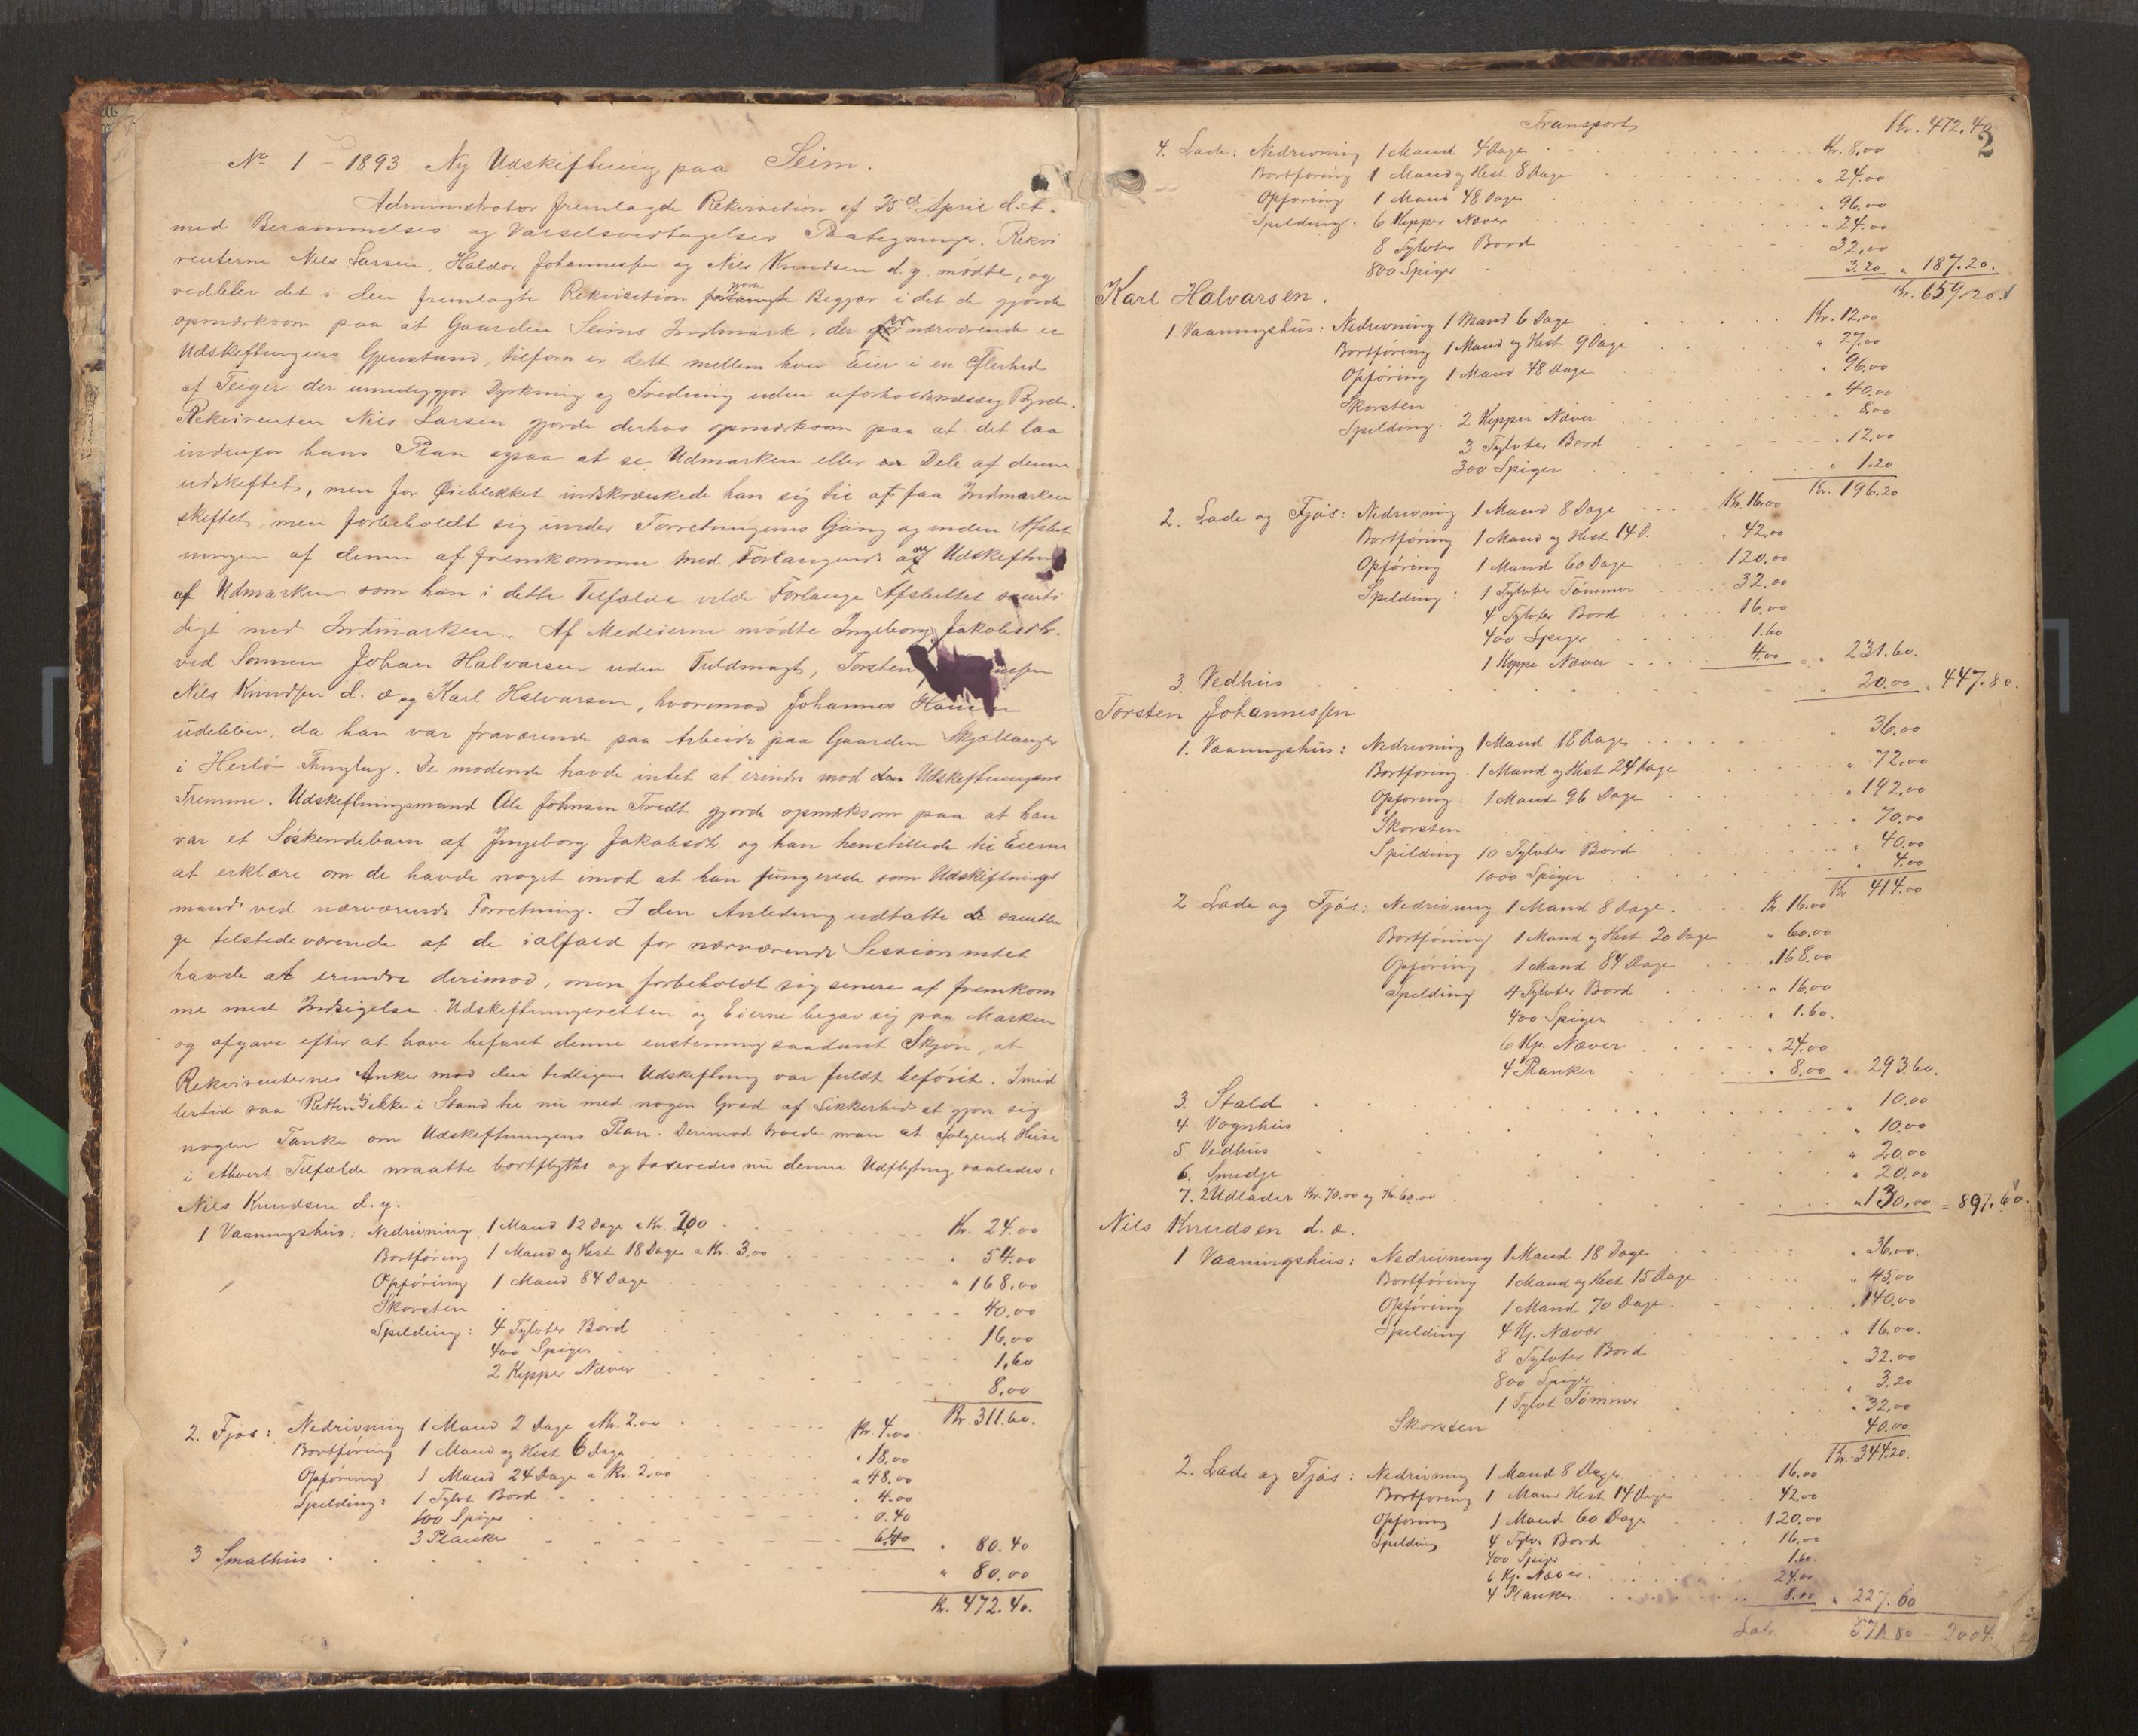 No 1 - 1893 Ny Udskiftning paa Seim.
Administrator fremlagde Rekvisition af 25de April d.A.
med Berammelses og Varselsvedtagelses Paategninger. Rekvi
renterne Nils Larsen, Haldor Johannessen og Nils Knudsen d.y. mødte, og
vedblev det i den fremlagte Rekvisition Begjær idet de gjorde
opmærksom paa at Gaarden Seims Indmark, der nærværende er
Udskiftningens Gjenstand, tilforn er delt mellem hver Eier i en Flerhed
af Teiger der umuliggjør Dyrkning og Fredning uden uforholdsmæssig Byrde.
Rekvirenten Nils Larsen gjorde derhos opmærksom paa at det laa
indenfor hans Plan ogsaa at se Udmarken eller Dele af denne
udskiftet, men for Øieblikket indskrænkede han sig til at faa Indmarken
skiftet, men forbeholdt sig under Forretningens Gang og inden Afslut
ningen af denne at fremkomme med Forlangende om Udskiftning
af Udmarken som han i dette Tilfælde vilde Forlange Afsluttet samti
digt med Indmarken. Af Medeierne mødte Ingeborg Jakobsdtr.
ved Sønnen Johan Halvarsen uden Fuldmagt, Torsten
Nils Knudsen d. æ og Karl Halvarsen, hvorimod Johannes
udeblev, da han var fraværende paa Arbeide paa Gaarden Skjællanger
i Herlø Thinglag. De mødende havde intet at erindre mod Udskiftningens
Fremme. Udskiftningsmand Ole Johnsen Tvedt gjorde opmærksom paa at han
var et Søskendebarn af Ingeborg Jakobsdtr. og han henstillede til Eierne
at erklære om de havde noget imod at han fungerede som Udskiftnings
mand ved nærværende Forretning. I den Anledning udtalte de samtli
ge tilstedeværende at de ialfald for nærværende Session intet
havde at erindre derimod, men forbeholdt sig senere at fremkom
me med Indsigelse. Udskiftningsretten og Eierne begav sig paa Marken
og afgave efter at have befaret denne enstemmig saadant Skjøn, at
Rekvirenternes Anke mod den tidligere Udskiftning var fuldt beføiet. Imid
lertid saa Retten sig ikke i Stand til nu med nogen Grad af Sikkerhed at gjøre sig
nogen Tanke om Udskiftningens Plan. Derimod troede man at følgende Huse
i ethvert Tilfælde maatte bortflyttes og taxeredes nu denne Udflytning saaledes:
Nils Knudsen d. y.
1 Vaaningshus: Nedrivning 1 Mand 12 Dage a Kr. 2,00 Kr. 24.00
Bortføring 1 Mand og Hest 18 Dage a Kr. 3,00 " 54.00
Opføring 1 Mand 84 Dage " 168.00
Skorsten 40,00
Spilding: 4 Tylvter Bord 16.00
400 Spiger 1,60
2 Kipper Næver 8,00
Kr. 311.60.
2. Fjøs: Nedrivning 1 Mand 2 Dage a Kr. 2.00 Kr. 4.00
Bortføring 1 Mand og Hest 6 Dage " 18,00
Opføring 1 Mand 24 Dage a Kr. 2,00 " 48.00
Spilding: 1 Tylvt Bord " 4.00
100 Spiger " 0.40
3 Planke " 80.40
3 Smalhus " 80.00
Kr. 472.40.
2
Transport Kr. 472.40
4. Lade: Nedrivning 1 Mand 4 Dage Kr. 8,00
Bortføring 1 Mand og Hest 8 Dage " 24.00
Opføring 1 Mand 48 Dage " 96.00
Spilding: 6 Kipper Næver " 24.00
8 Tylvter Bord 32,00
800 Spiger 3.20 " 187.20.
Kr. 659,20
Karl Halvarsen.
1 Vaaningshus: Nedrivning 1 Mand 6 Dage Kr. 12,00
Bortføring 1 Mand og Hest 9 Dage " 27.00
Opføring 1 Mand 48 Dage " 96.00
Skorsten " 40,00
Spilding: 2 Kipper Næver 8,00
3 Tylvter Bord " 12,00
300 Spiger " 1.20
Kr. 196.20
2. Lade og Fjøs: Nedrivning 1 Mand 8 Dage Kr. 16.00
Bortføring 1 Mand og Hest 14 D. " 42,00
Opføring 1 Mand 60 Dage 120,00
Spilding: 1 Tylvter Tømmer 32,00
4 Tylvter Bord 16.00
400 Spiger 1.60
1 Kippe Næver 4.00 = " 231.60.
3. Vedhus 20.00 " 447.80.
Torsten Johannessen
1. Vaaningshus: Nedrivning 1 Mand 18 Dage " 36.00
Bortføring 1 Mand og Hest 24 Dage " 72.00
Opføring: 1 Mand 96 Dage " 192.00
Skorsten " 70.00
Spilding 10 Tylvter Bord " 40.00
1000 Spiger " 4.00
Kr. 414.00
2 Lade og Fjøs: Nedrivning 1 Mand 8 Dage. Kr. 16.00
Bortføring 1 Mand og Hest 20 Dage " 60.00
Opføring 1 Mand 84 Dage " 168.00
Spilding 4 Tylvter Bord " 16.00
400 Spiger " 1.60.
6 Kp. Næver " 24.00
4 Planker " 8.00 " 293.60.
3. Stald " 10.00
4 Vognhus " 10.00
5 Vedhus " 20.00
6. Smidje " 20.00
7. 2 Udlader Kr. 70.00 og Kr. 60.00 " 130,00 = 897.60.
Nils Knudsen d. æ.
1 Vaaningshus: Nedrivning 1 Mand 18 Dage " 36,00.
Bortføring 1 Mand og Hest 15 Dage " 45,00
Opføring 1 Mand 70 Dage. " 140,00
Spilding 4 Kp. Næver " 16.00.
8 Tylvter Bord " 32.00
800 Spiger " 3.20
1 Tylvt Tømmer " 32,00
Skorsten 40.00
Kr. 344.20.
2. Lade og Fjøs: Nedrivning 1 Mand 8 Dage. 16.00
Bortføring 1 Mand Hest 14 Dage 42,00
Opføring 1 Mand 60 Dage 120.00
Spilding 4 Tylv. Bord 16,00
400 Spiger 1.60.
6 Kp. Næver. 24.00
4 Planker. 8.00 " 227.60
Latr. 571 80 - 2004.